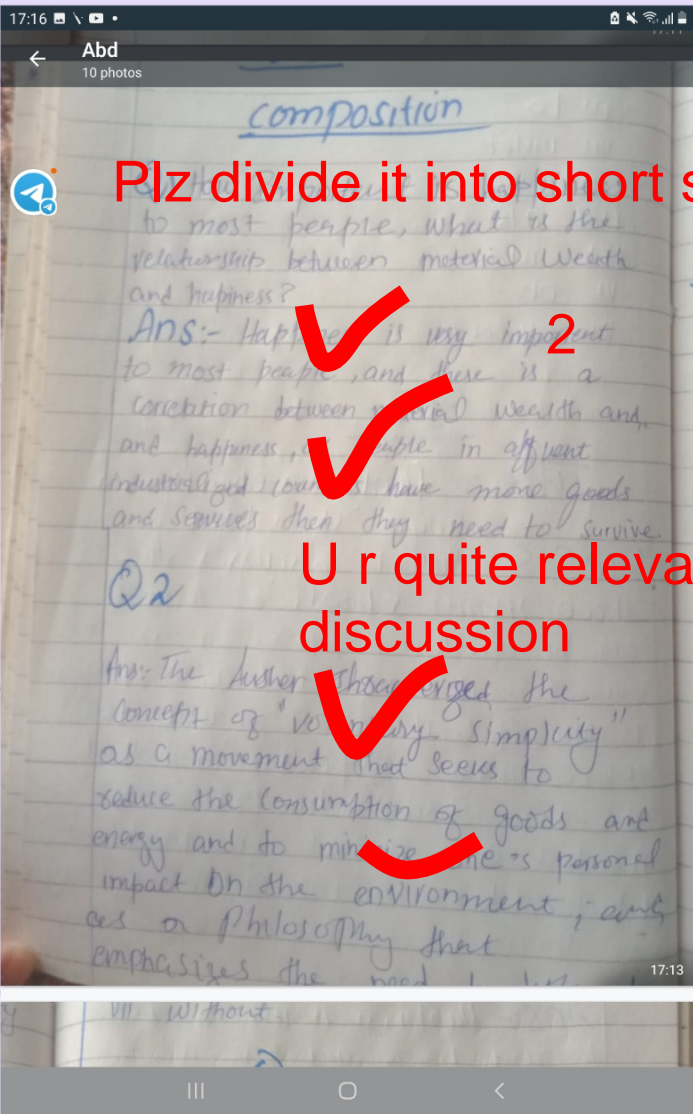 17:16
Abd
10 photos
composition
Plz divide it into short s
to most peaple, what is the
relationship between meterial Weath
and hapiness?
Ans:- Happ is very importent
2
to most peaple, and there is a
correlation between material wealth and
and happiness, people in affluent
industrialized have more goods
and services then they need to survive.
U r quite releva
discussion
Q2
Ans:- The Auther the
Concept of "voluntary Simplicity"
as a movement that seeks to
reduce the Consumption of goods and
energy and to minimize one's personal
impact on the environment; and
as a Philosophy that
emphasizes the need
17:13
without